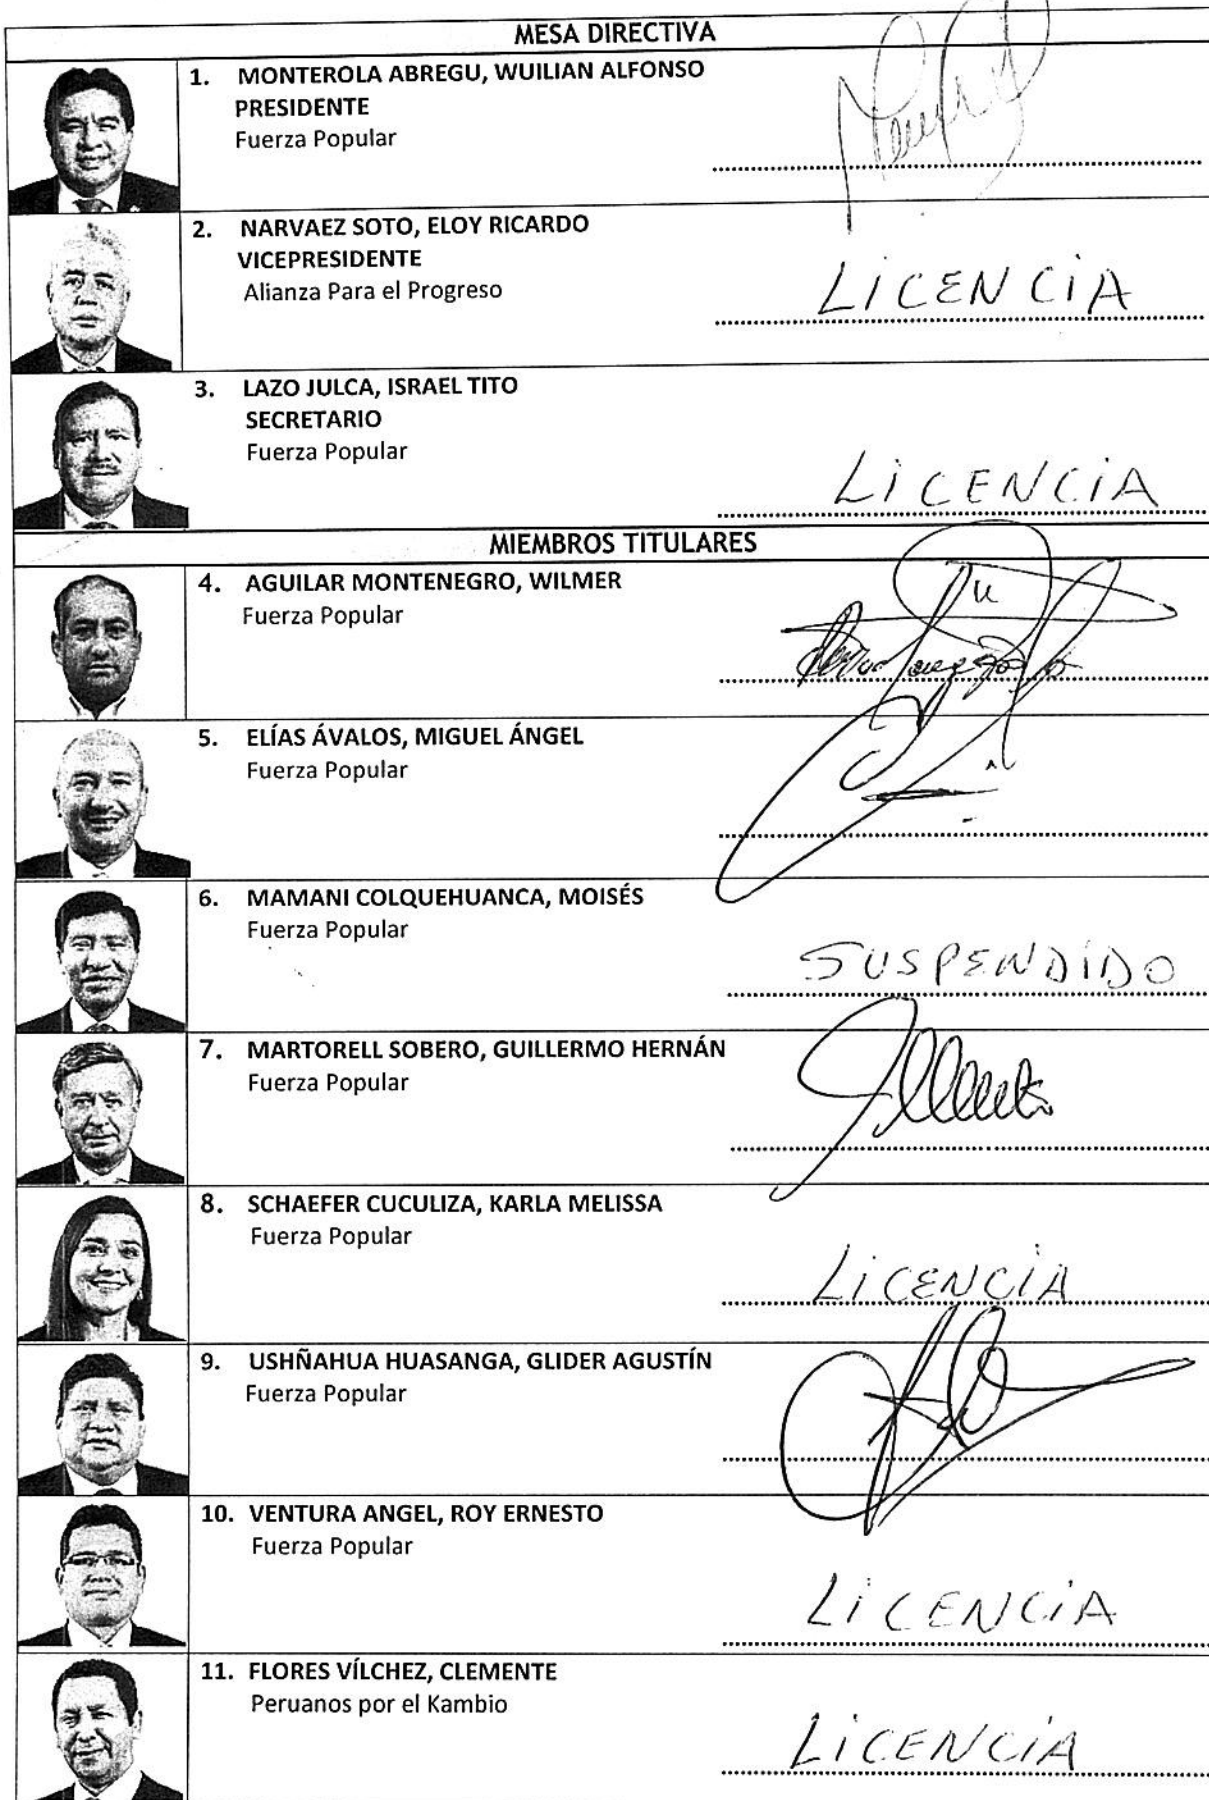 MESA DIRECTIVA
1. MONTEROLA ABREGU, WUILIAN ALFONSO
PRESIDENTE
Fuerza Popular
2. NARVAEZ SOTO, ELOY RICARDO
VICEPRESIDENTE
Alianza Para el Progreso
LiCENCiA
3. LAZO JULCA, ISRAEL TITO
SECRETARIO
Fuerza Popular
LiCENCiA
MIEMBROS TITULARES
4. AGUILAR MONTENEGRO, WILMER
Fuerza Popular
5. ELÍAS ÁVALOS, MIGUEL ÁNGEL
Fuerza Popular
6. MAMANI COLQUEHUANCA, MOISÉS
Fuerza Popular
SUSPENDiDO
7. MARTORELL SOBERO, GUILLERMO HERNÁN
Fuerza Popular
8. SCHAEFER CUCULIZA, KARLA MELISSA
Fuerza Popular
LiCENCiA
9. USHÑAHUA HUASANGA, GLIDER AGUSTÍN
Fuerza Popular
10. VENTURA ANGEL, ROY ERNESTO
Fuerza Popular
LiCENCiA
11. FLORES VÍLCHEZ, CLEMENTE
Peruanos por el Kambio
LiCENCiA